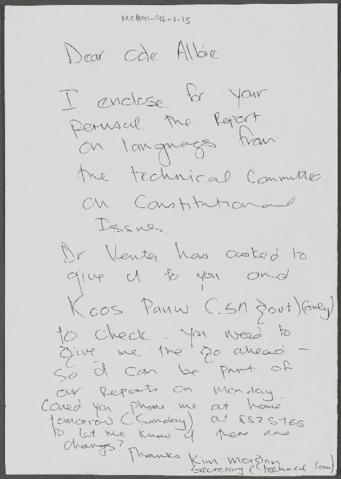 MCH91-96-1-15
Dear Cde Albie
I enclose for your
perusal the Report
on languages from
the technical Committee
on Constitutional
Issues.
Dr Venter has asked to
give it to you and
Koos Pauw (SA Govt)
to check. You need to
give me the go ahead –
so it can be part of
our Reports on Monday.
Could you phone me at home
tomorrow (Sunday) at
to let me know if there are
changes?
Thanks Kim Morgan
Secretary (technical Com)